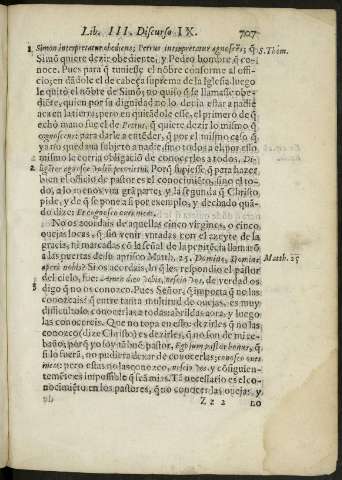 Lib. III. Discurso IX. 707
1 Simon interpretatur obediens; Petrus interpretatur agnoscẽs; q̃ S. Thom.
Simõ quiere dezir obediente, y Pedro hombre q̃ co-
noce. Pues para q̃ tuuiesse el nõbre conforme al offi-
cio; en dãdole el de cabeça suprema de la Iglesia; luego
le quitó el nõbre de Simõ; no quiso q̃ se llamasse obe-
diẽte, quien por su dignidad no lo deuia estar a nadie
aca en la tierra; pero en quitãdole esse, el primero de q̃
echó mano fue el de Petrus, q̃ quiere dezir lo mismo q̃
cognoscens: para darle a entẽder, q̃ por el mismo caso q̃
ya no quedaua subjeto a nadie, sino todos a el por esso
mismo le corria obligació de conocerlos a todos,
2 Porq̃ supiesse q̃ para hazer
bien el officio de pastor es el conocimiẽto, sino el to-
do, a lo menos vna grã parte, y la segunda q̃ Christo
pide, y de q̃ se pone a si por exemplo, y dechado quã-
do dize: Et cognosco oues meas.
No os acordais de aquellas cinco virgines, o cinco
ouejas locas, q̃ sin venir vntadas con el azeyte de la
gracia, ni marcadas cõ la señal de la penitẽcia llamarõ
a las puertas deste aprisco Matth. 25. Domine, Domine, Matth. 25
aperi nobis? Si os acordais, lo q̃ les respondio el pastor
del cielo, fue: Amen dico vobis, nescio vos, de verdad os
3 digo q̃ no os conozco. Pues Señor, q̃ importa q̃ no las
conozcais? q̃ entre tanta multitud de ouejas, es muy
difficultoso conocerlas a todas: abrildas aora, y luego
las conocereis. Que no topa en esso: dezirles q̃ no las
conozco (dize Christo) es dezirles, q̃ no son de mi re-
baño; porq̃ yo soy tã buẽ pastor, Ego sum pastor bonus, q̃
si lo fuerã, no pudiera dexar de conocerlas; cognosco oues
meas: pero estas no las conozco, nescio vos, y cõsiguien-
temẽte es impossible q̃ seã mias. Tã necessario es el co-
nocimiẽto en los pastores, q̃ no conocer las ouejas, y
Zz 2 no